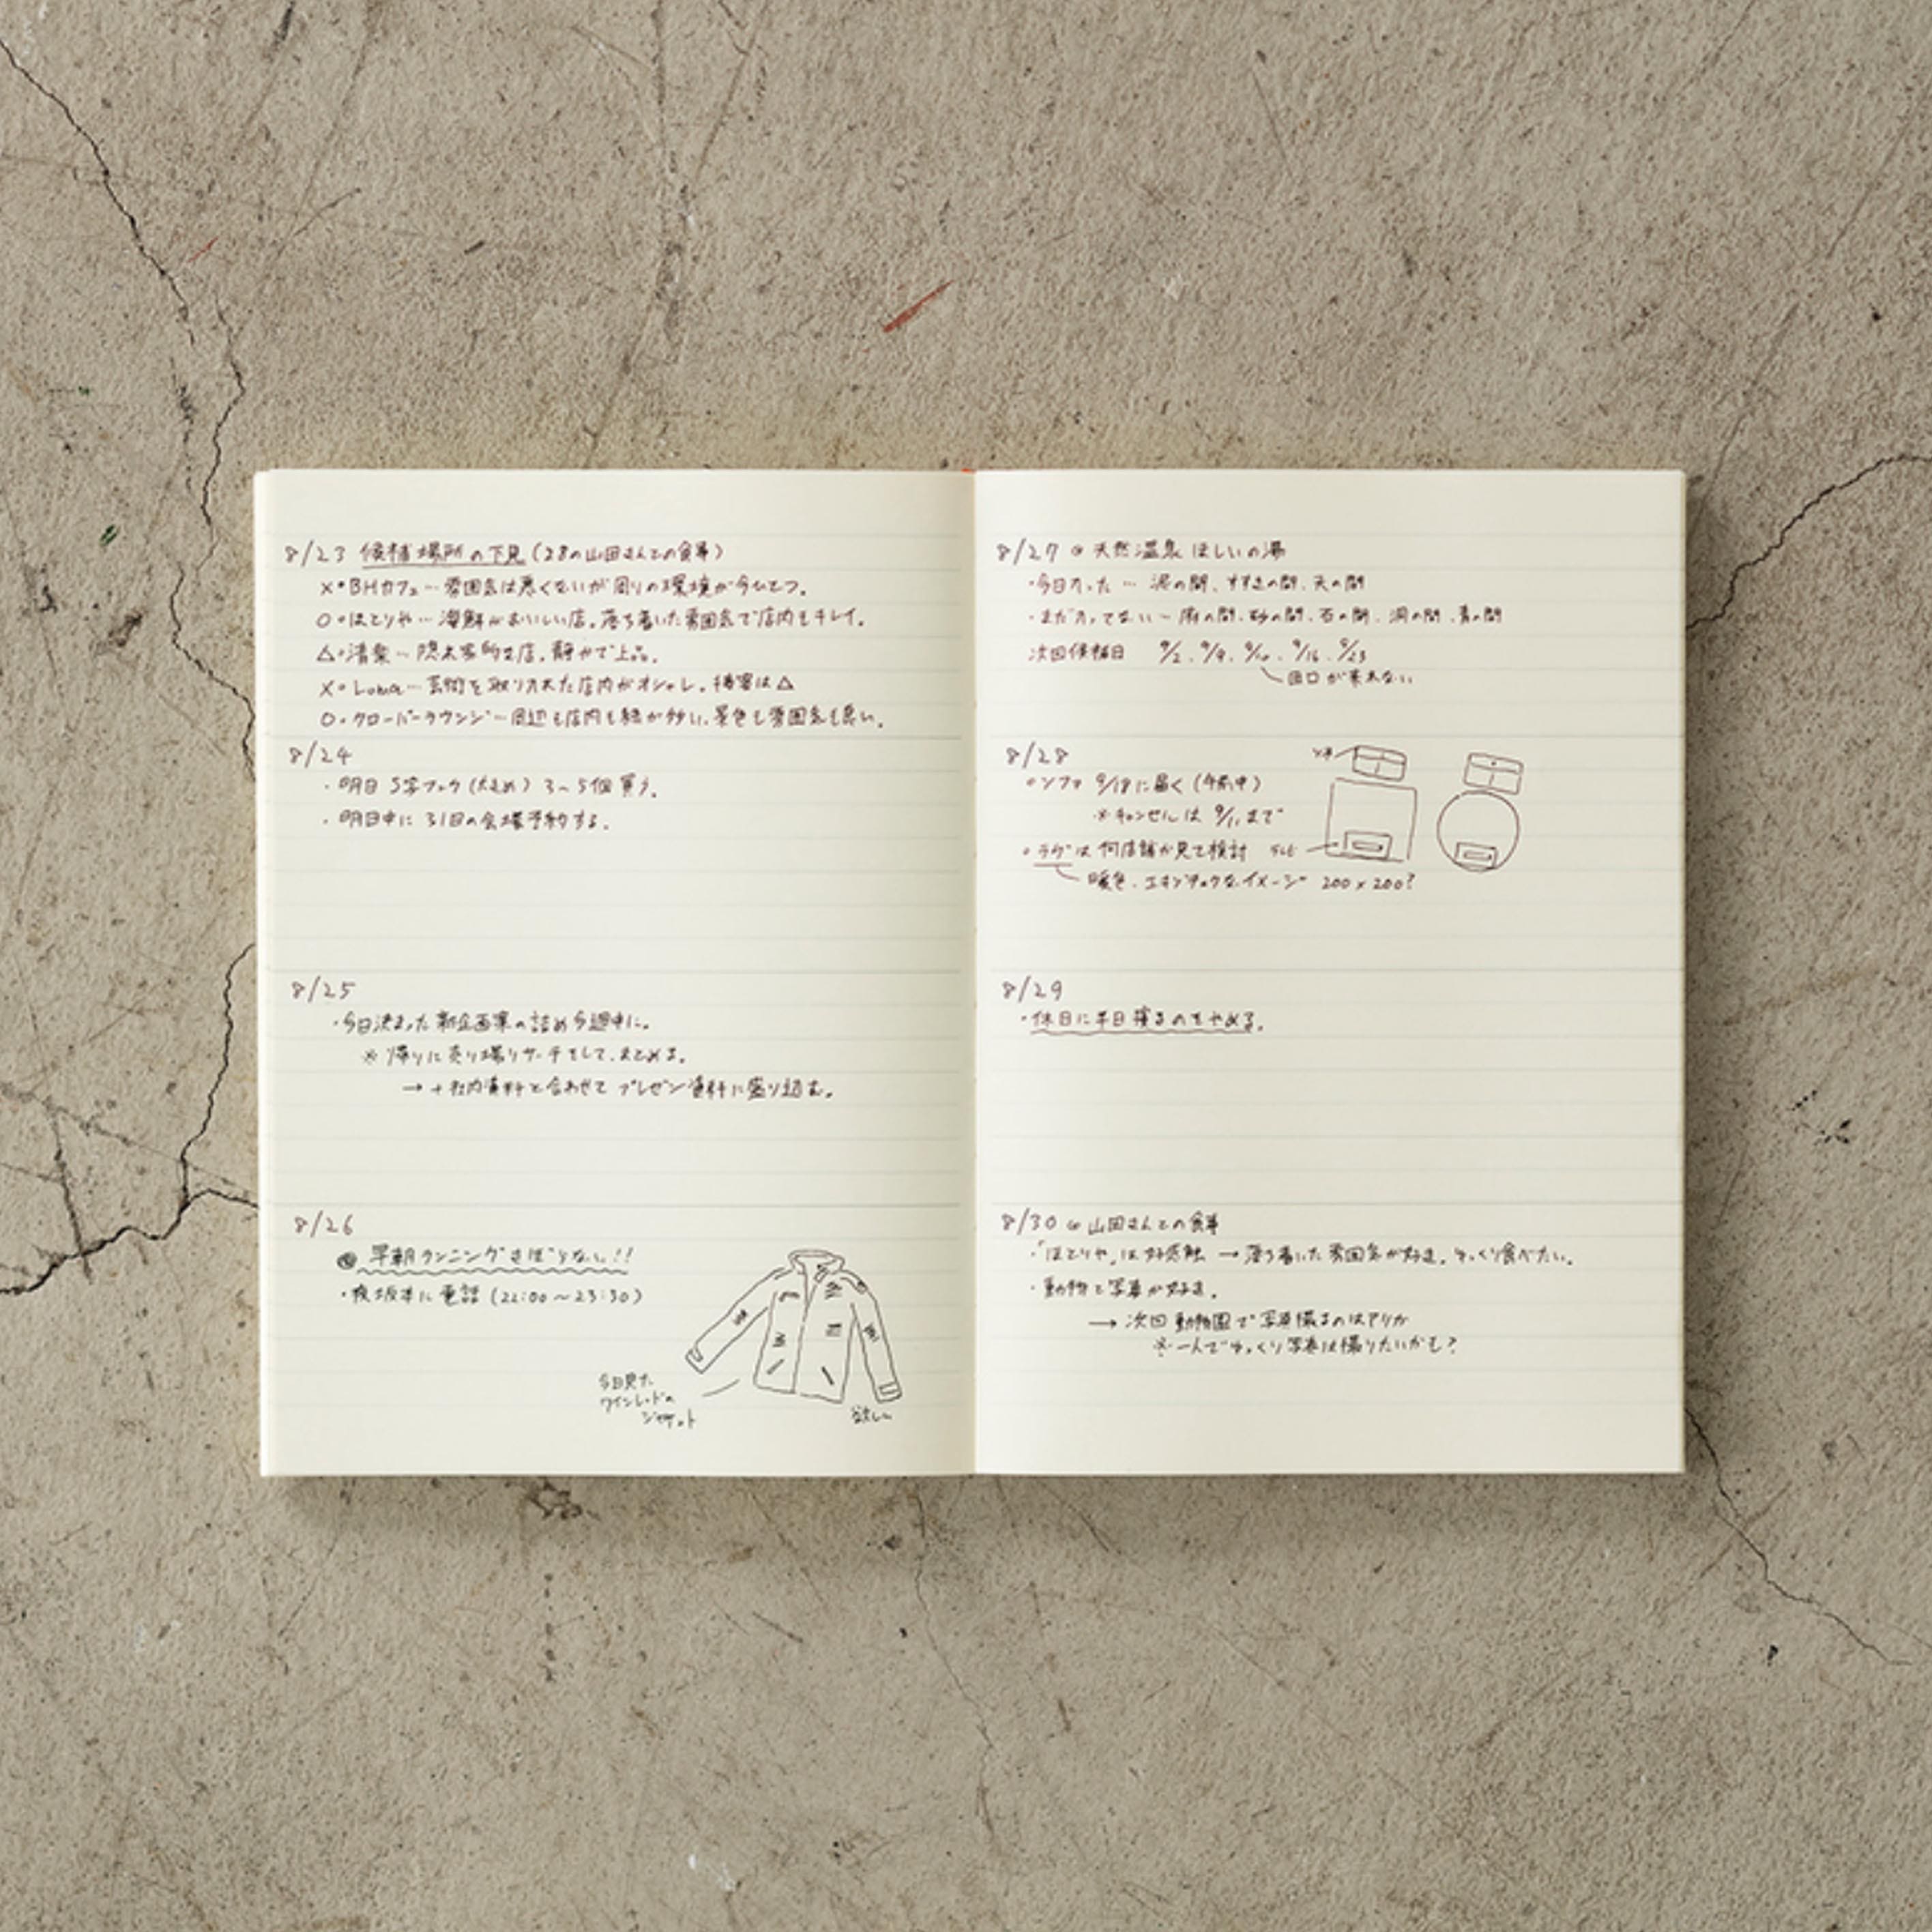 8/23 候補場所の下見(28の山田さんとの食事)
×・BHカフェ…雰囲気は悪くないが周りの環境が今ひとつ。
○・ほとりや…海鮮がおいしい店。落ち着いた雰囲気で店内もキレイ。
△・清楽…隠れ家的な店。静かで上品。
×・Luna…芸術を取り入れた店内がオシャレ。接客は△
○・クローバーラウンジ…周辺も店内も緑が多い、景色も雰囲気も良い。
8/24
・明日 S字フック(大きめ)3〜5個買う。
・明日中に31日の会場予約する。
8/25
・今日決まった新企画案の詰め今週中に。
※帰りに売り場リサーチをして、まとめる。
→+社内資料と合わせてプレゼン資料に盛り込む。
8/26
早朝ランニングさぼらない!!
・夜坂本に電話(22:00〜23:30)
今日見た
ワインレッドの
ジャケット
欲しい
8/27 @天然温泉 ほしいの湯
・今日入った… 泥の間、すすきの間、天の間
・まだ入ってない… の間、砂の間、石の間、洞の間、青の間
次回候補日 9/2、9/9、9/10、9/16、9/23
田口が来れない
8/28
・ソファ 9/18に届く(午前中)
※キャンセルは 9/11まで
・ラグは何店舗か見て検討
テレビ
暖色、エキゾチックなイメージ 200×200?
8/29
・休日に半日寝るのをやめる。
8/30 @山田さんとの食事
・「ほとりや」は好感触 →落ち着いた雰囲気が好き。ゆっくり食べたい。
・動物と写真が好き。
→次回動物園で写真撮るのはアリか
※一人でゆっくり写真は撮りたいかも?